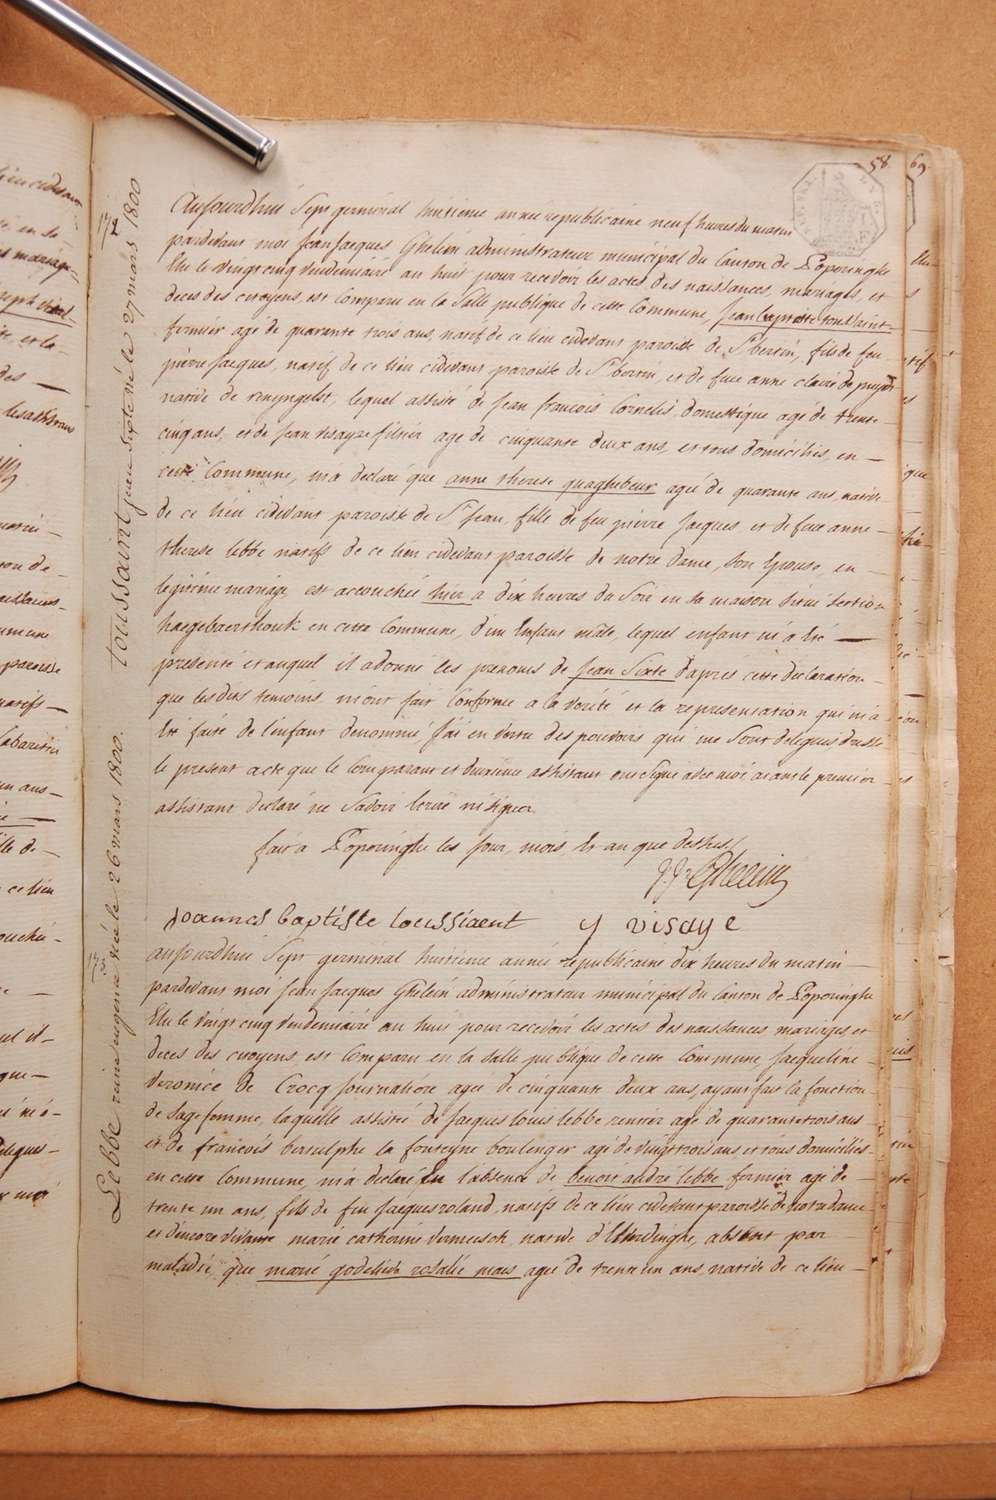 58. 69
Aujourdhui Sept germinal huitieme année republicaine neuf heures du matin
pardevant moi Jean Jacques Ghelein administrateur municipal du Canton de Poperinghe
Elu le vingt cinq vendemiaire an huit pour recevoir les actes des naissances, mariages, et
deces des citoyens, est Comparu en la Salle publique de cette Commune, Jean baptiste toussaint
fermier agé de quarante trois ans, natif de ce lieu cidevant paroisse de St bertin, fils de feu
pierre Jacques, natif de ce lieu cidevant paroisse de St bertin, et de feue anne claire de puydt
native de renyngelst, lequel assisté de Jean francois Cornelis, domestique agé de trente-
cinq ans, et de Jean visaye filtier agé de cinquante deux ans, et tous domiciliés, en —
cette Commune, m'a declaré que anne therese quaghebeur agée de quarante ans, native
de ce lieu cidevant paroisse de St Jean, fille de feu pierre Jacques et de feue anne-
therese lebbe natifs de ce lieu cidevant paroisse de notre dame, son Epouse, en —
legitime mariage, est accouchée hier a dix heures du Soir en sa maison Situé Section
haegebaerthouk en cette Commune, d'un Enfant mâle, lequel enfant m'a été —
presenté et auquel il a donné les prenoms de Jean Sixte d'apres cette declaration —
que lesdits temoins m'ont fait Conforme a la vérité et la representation qui m'a
Eté faite de l'enfant denommé, J'ai en vertu des pouvoirs qui me Sont delegués dressé
le present acte que le Comparant et deuxieme assistant ont Signé avec moi, aiant le premier
assistant declaré ne Savoir Ecrire ni signer
fait a Poperinghe les Jour, mois, Et an que dessus
J. J. Ghelein
joannes baptiste toussiaent y visaye
aujourdhui Sept germinal huitieme année republicaine dix heures du matin —
pardevant moi Jean Jacques Ghelein administrateur municipal du Canton de Poperinghe
Elu le vingt cinq vendemiaire an huit pour recevoir les actes des naissances mariages et
deces des citoyens est Comparu en la Salle publique de cette Commune, Jacqueline —
veronice de Crocq Journaliere agée de cinquante deux ans, ayant fait la fonction
de Sage femme, laquelle assisté de Jacques louis lebbe rentier agé de quarante trois ans
et de francois la fonteyne boulenger agé de vingt trois ans et tous domiciliés-
en cette Commune, m'a declaré En l'absence de benoit andré lebbe fermier agé de —
trente un ans, fils de feu Jacques roland, natifs de ce lieu cidevant paroisse de notre dame
et d'encore vivante marie catherine vermeesch, native d'Elverdinghe, absent par —
maladie, que marie godelieve rosalie maes agée de trente un ans, native de ce lieu —
toussaint jean Sixte né le 27 mars 1800
Lebbe eugenie née le 26 mars 1800.